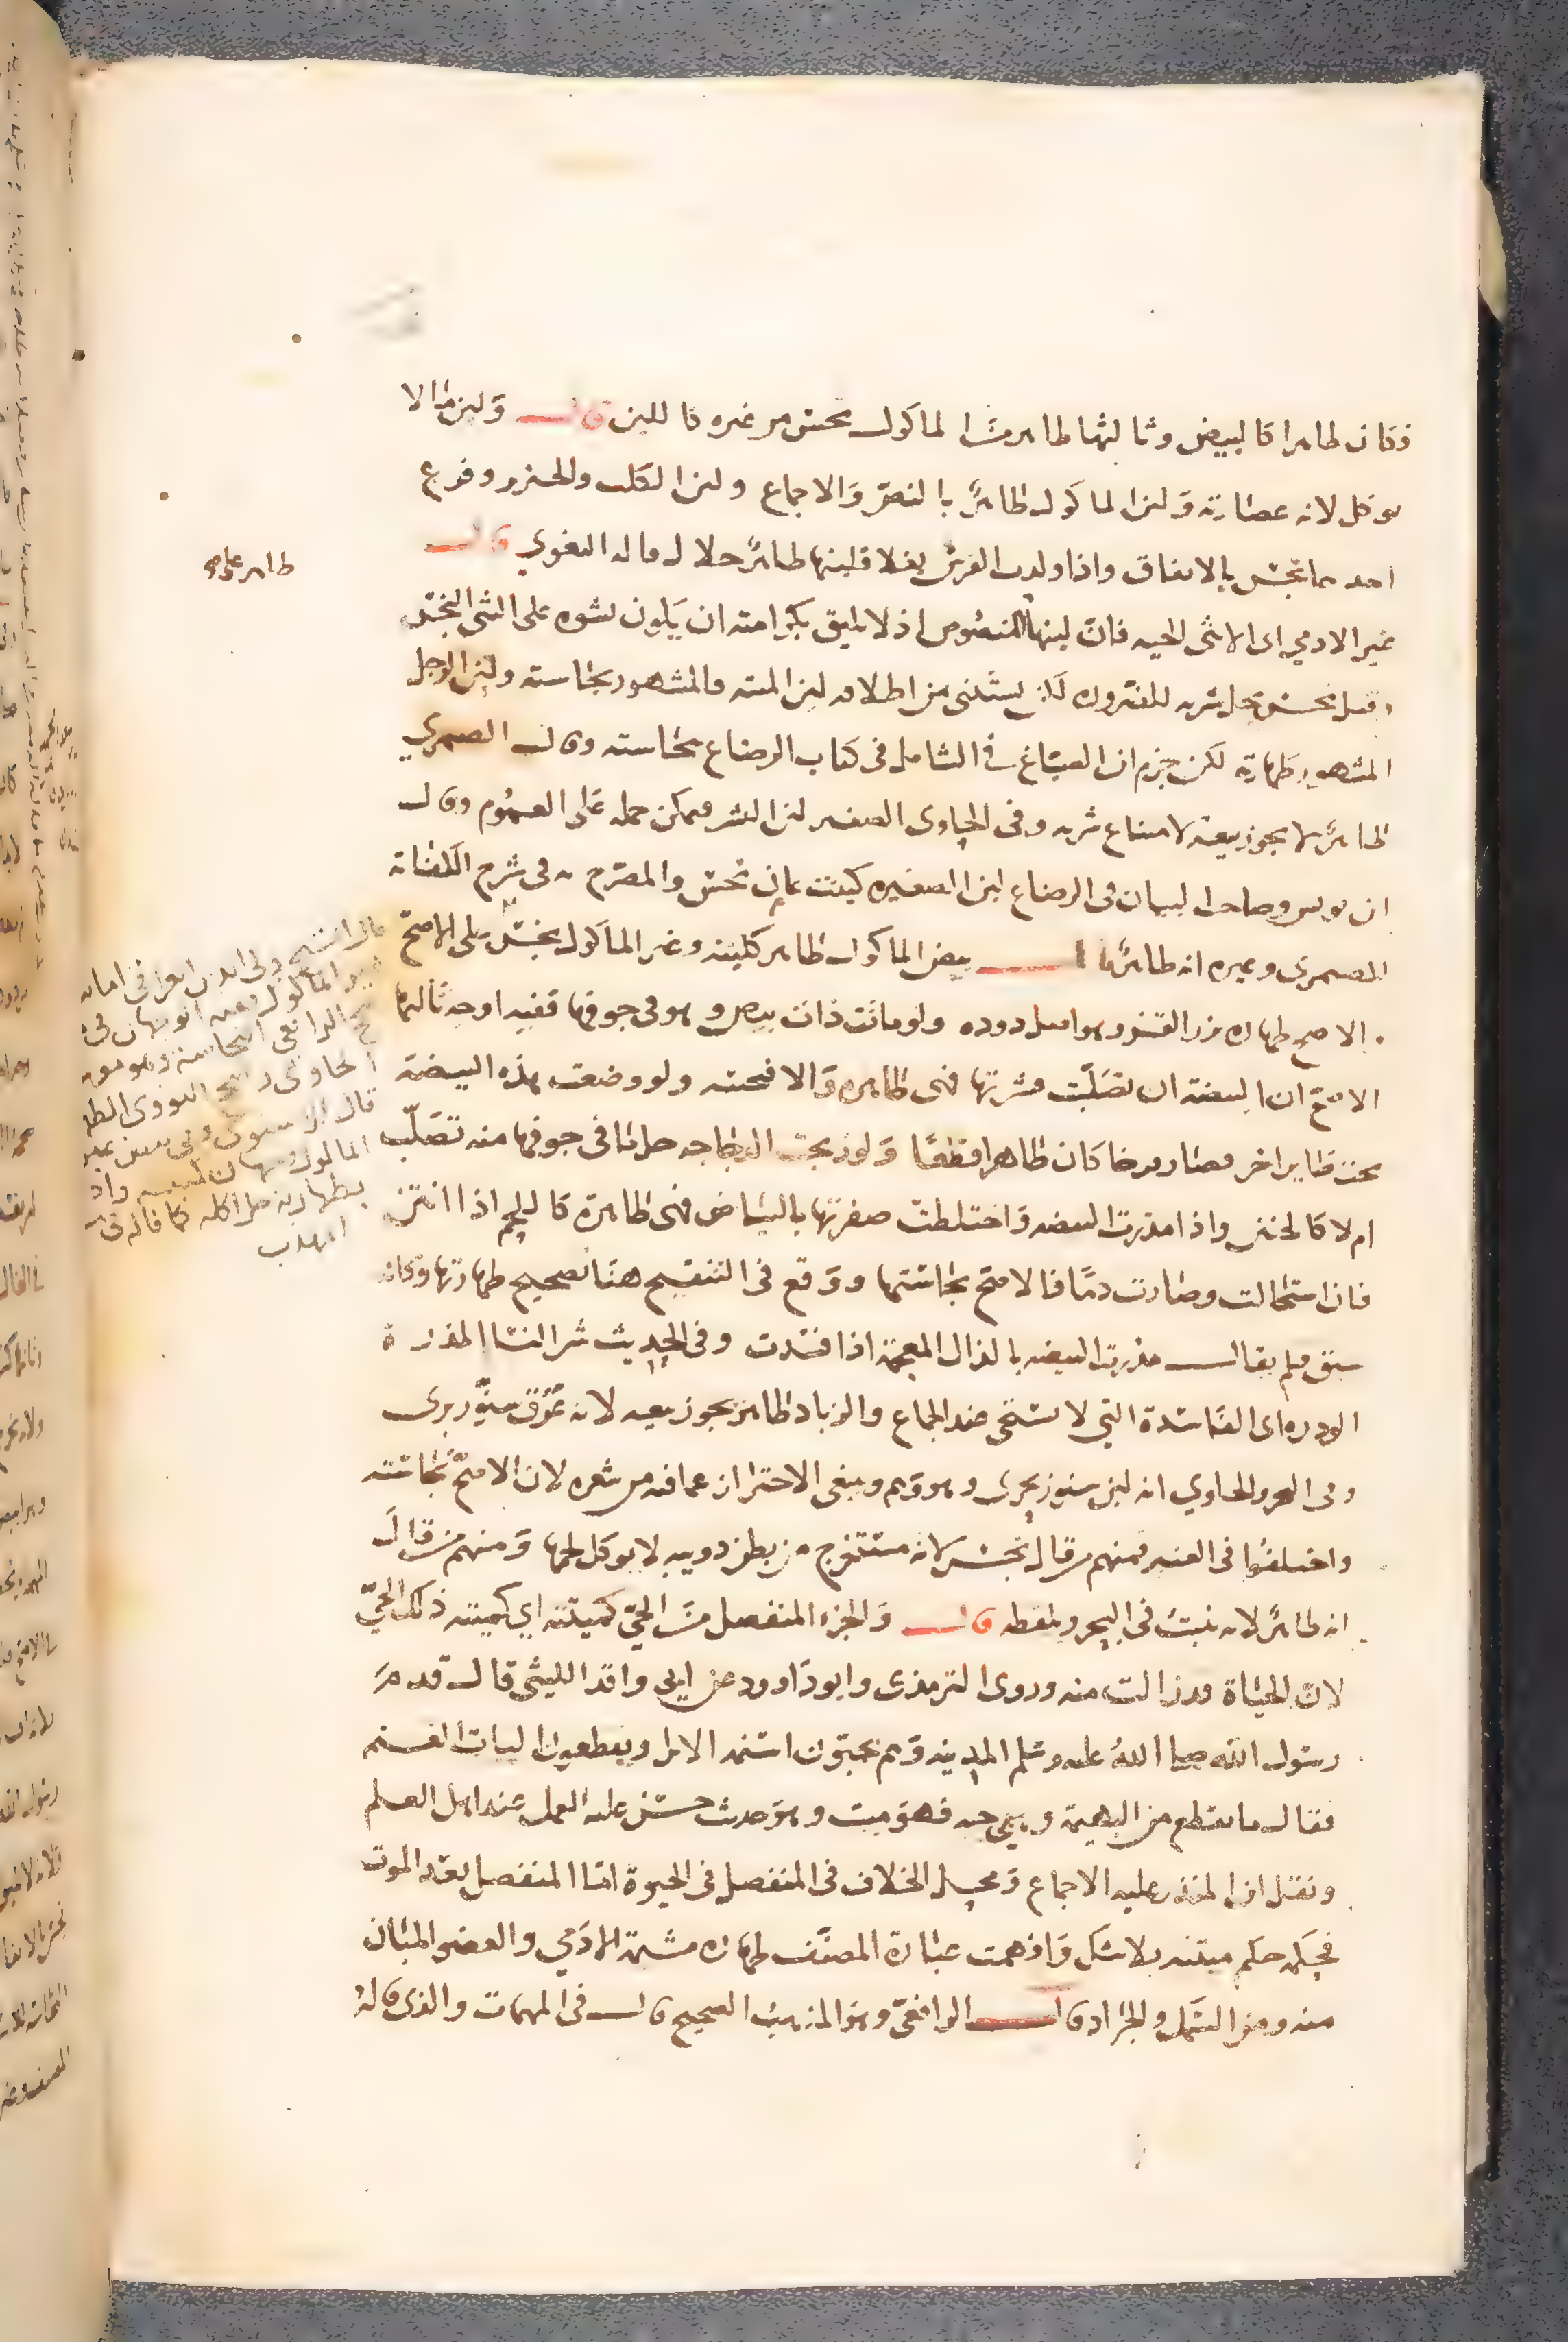 فكان طاهرا كالبيض وثالثها طاهر من الماكول نجس من غيره كاللبن قال ولبن ما لا
يوكل لانه عصارته ولبن الماكول طاهرٌ بالنص والاجماع ولبن الكلب والخنزير وفرع
احدهما نجس بالاتفاق واذا ولدت الفرس بغلا فلبنها طاهرٌ حلال قاله البغوي قال
غير الادمي اى الانثى الحيه فان لبنها المنصوص اذ لا يليق بكرامته ان يكون نشوه على الشى النجس
وقيل نجس يحل شربه للضروره لكن يستثنى من اطلاقه لبن الميته فالمشهور نجاسته ولبن الرجل
المشهور طهارته لكن جزم ابن الصباغ في الشامل فى كتاب الرضاع بنجاسته وقال الصيمري
طاهرٌ لا يجوز بيعه لامتناع شربه وفى الحاوى الصغير لبن البشر فيمكن حمله على العموم وقال
ابن يونس وصاحب البيان فى الرضاع لبن الصغيره كبنت ثمان نجس والمصرح به فى شرح الكفاية
للصيمرى وغيره انه طاهرٌ قال بيض الماكول طاهر كلبنه وغير الماكول نجس على الاصح
الاصح طهاره بزر القز وهو اصل دوده ولو ماتت ذات بيض وهو فى جوفها ففيه اوجه ثالثها
الاصح ان البيضة ان تصلبت قشرتها فهى طاهره والا فنجسه ولو وضعت هذه البيضة
تحت طاير اخر فصار فرخا كان طاهرا قطعًا ولو ذبحت الدجاجه حل ما فى جوفها منه تصلب
ام لا كالجنين واذا مذرت البيضه واختلطت صفرتها بالبياض فهى طاهرة كاللحم اذا انتن
فان استحالت وصارت دمًا فالاصح نجاستها ووقع فى التنقيح هنا تصحيح طهارتها وكانه
سبق قلم يقال مذرت البيضه بالذال المعجمة اذا فسدت وفى الحديث شر النسا المذرة
الوذره اى الفاسدة التي لا تستحى عند الجماع والزباد طاهر يجوز بيعه لانه عرق سنور برى
وفى البحر والحاوي انه لبن سنور بحرى وهو وهم وينبغى الاحتراز عما فيه من شعره لان الاصح نجاسته
واختلفوا فى العنبر فمنهم من قال نجس لانه مستخرج من بطن دويبه لا يوكل لحمها ومنهم من قال
انه طاهرٌ لانه ينبت فى البحر ويلفظه قال والجزء المنفصل من الحيّ كميتته اي كميتة ذلك الحيّ
لان الحياة قد زالت منه وروى الترمذى وابو داوود عن ابى واقد الليثى قال قدم
رسول الله صلى الله عليه وسلم المدينه وهم يجبّون اسنمه الابل ويقطعون اليات الغنم
فقال ما يقطع من البهيمة وهى حيه فهو ميت وهو حديث حسن عليه العمل عند اهل العلم
ونقل ابن المنذر عليه الاجماع ومحل الخلاف فى المنفصل فى الحيوة اما المنفصل بعد الموت
فحكمه حكم ميتته بلا شك وافهمت عبارة المصنف طهاره مشيمة الادمي والعضو المبان
منه ومن السمك والجراد قال الرافعى وهو المذهب الصحيح قال فى المهمات والذى قاله
طاهر على
قال الشيخ ولى الدين العراقى فى اماليه
الحاوى ورجح النووى
قال الاسنوى وفى بيض غير
الماكول وجهان كلبنه واذا
بطهارته حل اكله كما قاله فى
المهذب